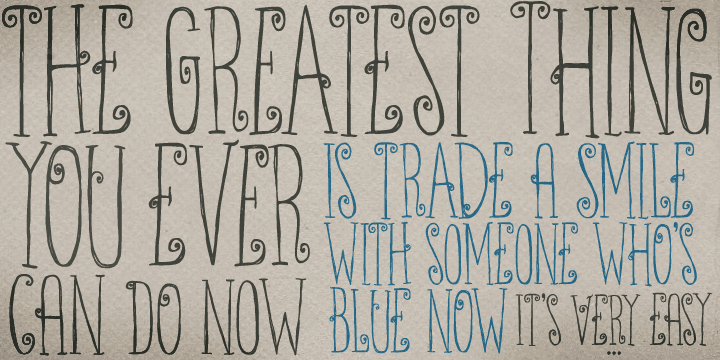 THE GREATEST THING
YOU EVER
CAN DO NOW
IS TRADE A SMILE
WITH SOMEONE WHO'S
BLUE NOW
IT'S VERY EASY
...